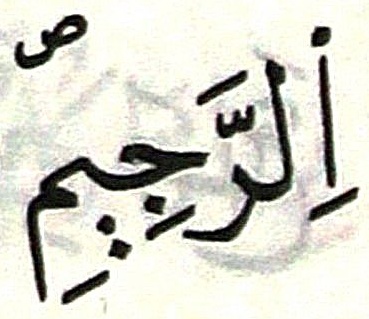 اِلرَّجِيمِ ص